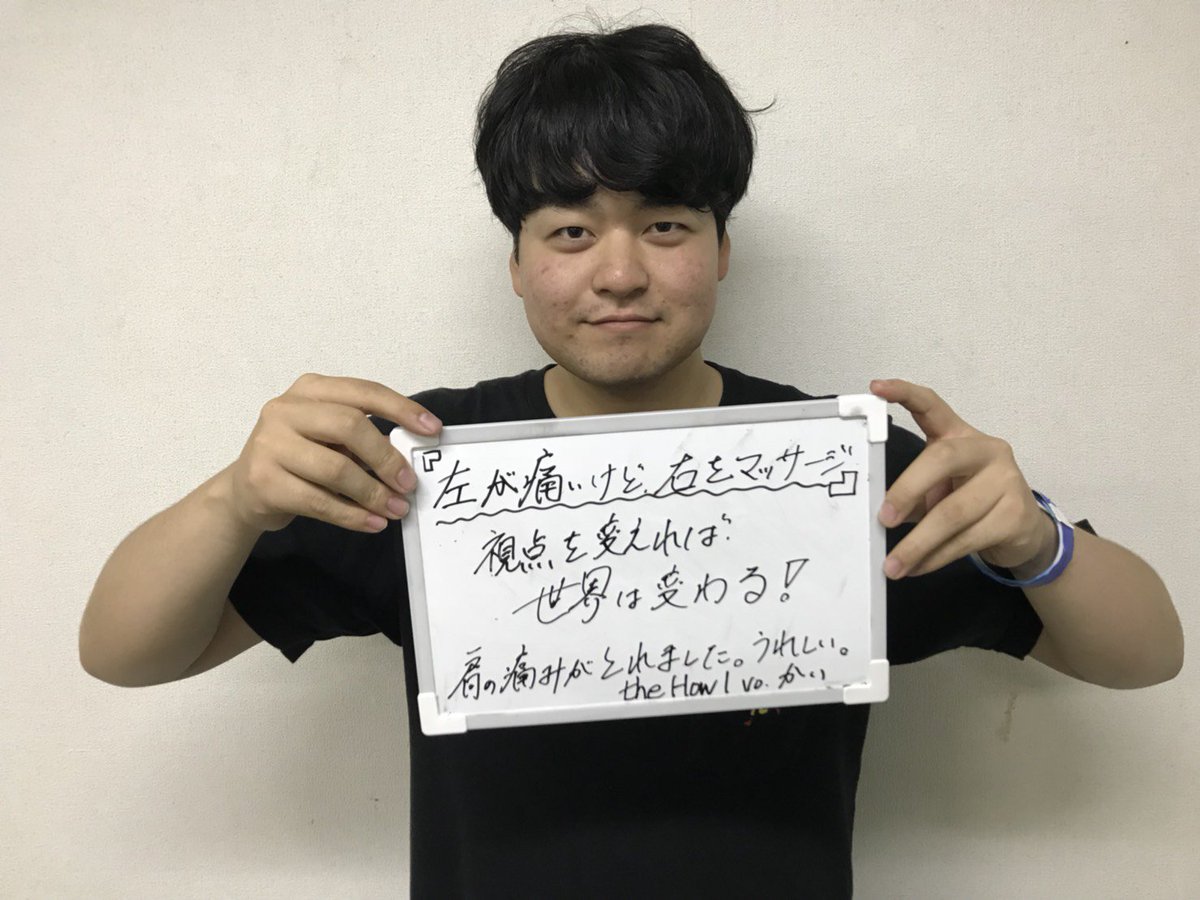 『左が痛いけど、右をマッサージ』
視点を変えれば、
世界は変わる!
肩の痛みがとれました。うれしい。
the Howl vo. かい